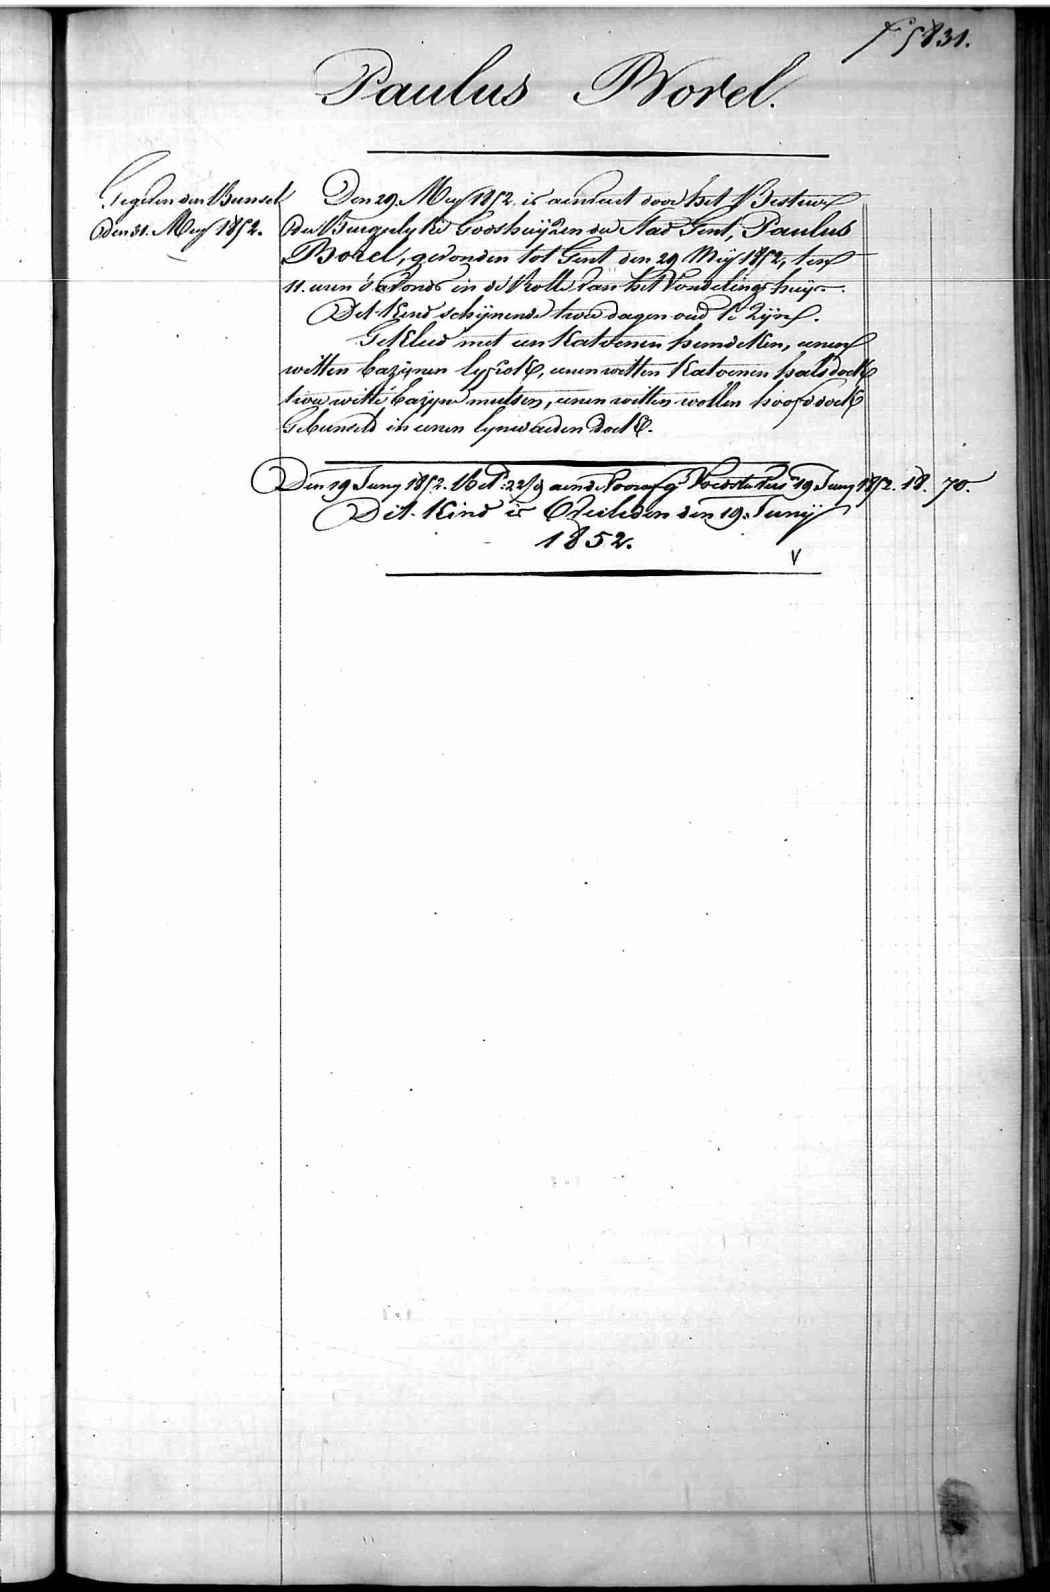 f° 5831.
Paulus Borel.
Gegeven den Bunsel
den 31. Mey 1852.
Den 29 Mey 1852 is aenveert door het Bestier
der Burgelyke Godshuijzen der Stad Gent, Paulus
Borel, gevonden tot Gent den 29 Meij 1852, ten
11. uren 's avonds in de Rolle van het Vondelinge huijs.
Dit Kind schijnende twee dagen oud te zijn.
Gekleed met een Katoenen hemdeken, eenen
witten bazijnen lyfrok, eenen witten Katoenen halsdoek
twee witte bazyne mutsen, eenen witten wollen hoofddoek
Gebunseld in eenen lynwaeden doek.
Den 19 Juny 1852. 22/9 aen de Voorsg Voedster tus 19 Juny 1852. 18. 70.
Dit Kind is Overleden den 19. Junij
1852.
V